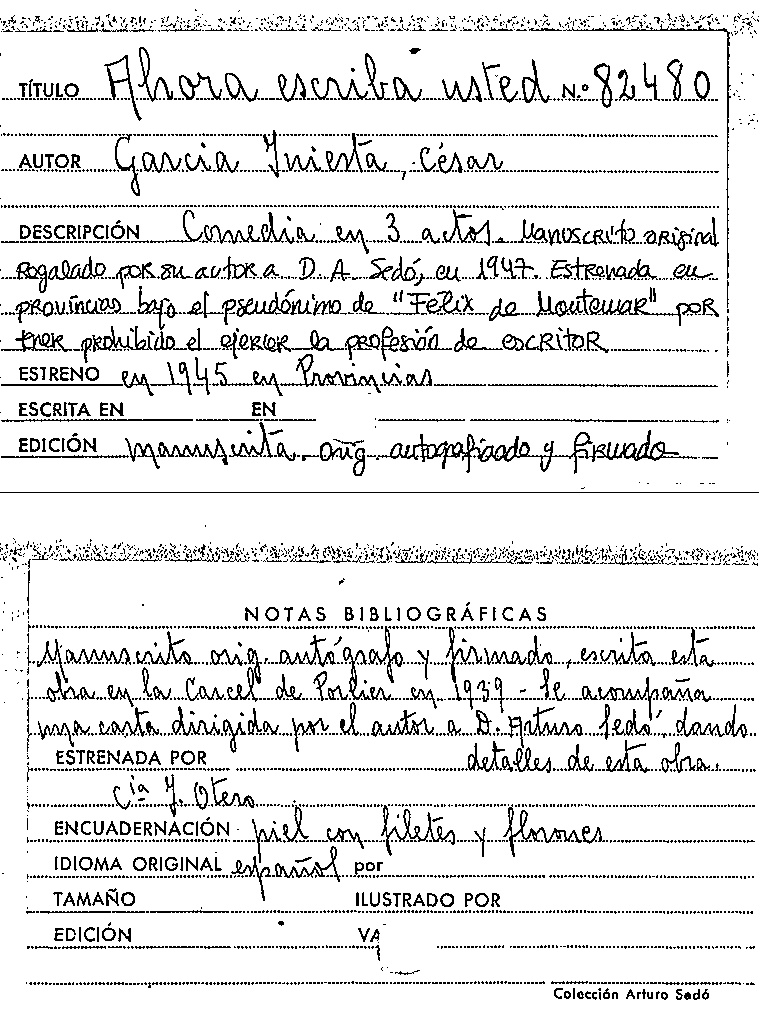 TÍTULO Ahora escriba usted N.º 82480
AUTOR Garcia Iniesta, César
DESCRIPCIÓN Comedia en 3 actos. Manuscrito original
Rogalado por su autor a D. A. Sedó, en 1947. Estrenada en
provincias bajo el pseudónimo de "Félix de Montemar" por
tener prohibido el ejercer la profesión de escritor
ESTRENO en 1945 en Provincias
ESCRITA EN EN
EDICIÓN manuscrita. orig. autografiado y firmado
NOTAS BIBLIOGRÁFICAS
Manuscrito orig. autógrafo y firmado, escrita esta
obra en la Carcel de Porlier en 1939 - Se acompaña
una carta dirigida por el autor a D. Arturo Sedó, dando
ESTRENADA POR detalles de esta obra.
Cía J. Otero
ENCUADERNACIÓN piel con filetes y florones
IDIOMA ORIGINAL español por
TAMAÑO ILUSTRADO POR
EDICIÓN VA
Colección Arturo Sedó